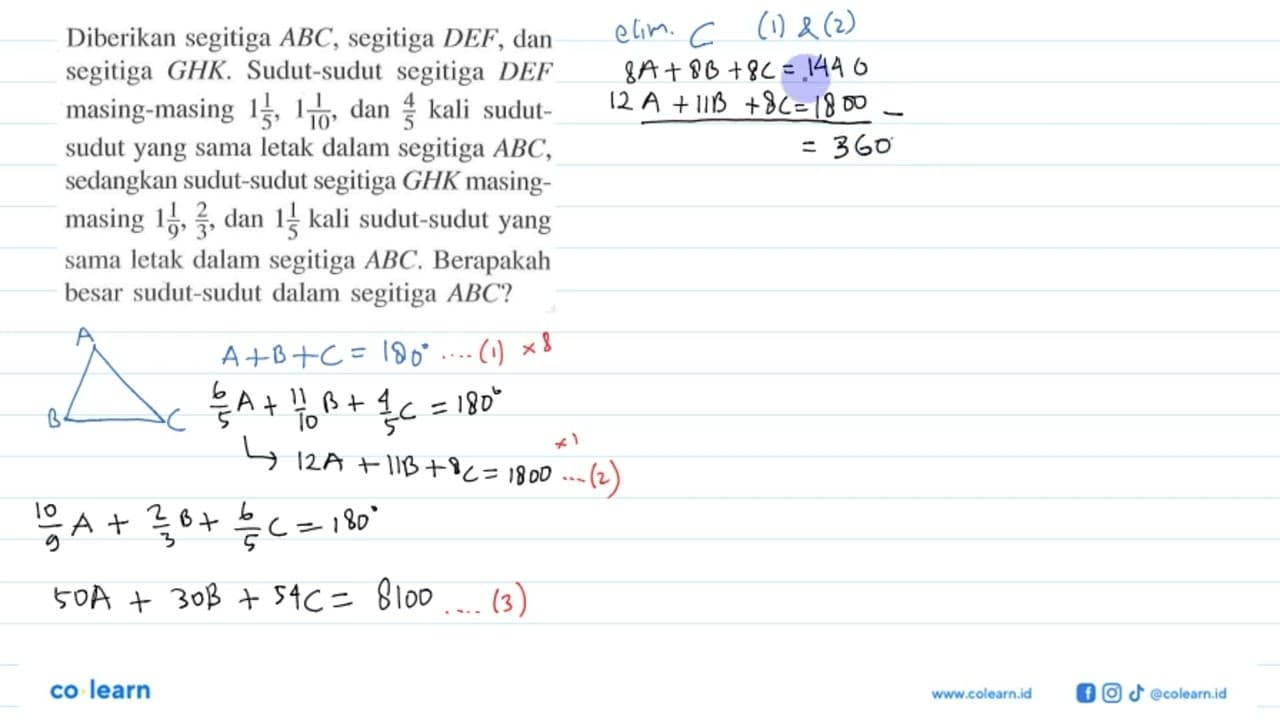 Diberikan segitiga ABC, segitiga DEF, dan
segitiga GHK. Sudut-sudut segitiga DEF
masing-masing 1 1/5, 1 1/10, dan 4/5 kali sudut-
sudut yang sama letak dalam segitiga ABC,
sedangkan sudut-sudut segitiga GHK masing-
masing 1 1/9, 2/3, dan 1 1/5 kali sudut-sudut yang
sama letak dalam segitiga ABC. Berapakah
besar sudut-sudut dalam segitiga ABC?
A
B
C
A+B+C = 180° ....(1) ×8
6/5 A + 11/10 B + 4/5 C = 180°
↳ 12A + 11B + 8C = 1800 ...(2) ×1
10/9 A + 2/3 B + 6/5 C = 180°
50A + 30B + 54C = 8100 ....(3)
elim. C (1) & (2)
8A + 8B + 8C = 1440
12A + 11B + 8C = 1800 −
= 360
co learn
www.colearn.id
@colearn.id